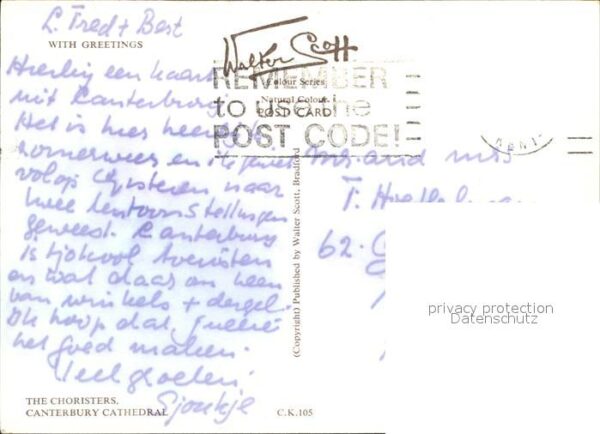 L. Fred + Bert
WITH GREETINGS
Walter Scott
Colour Series
Natural Colour
POST CARD
REMEMBER
to use the
POST CODE!
Hierbij een kaart
uit Canterbury.
Het is hier heerlijk
zomerweer en
volop. Gisteren naar
twee tentoonstellingen
geweest. Canterbury
is tjokvol toeristen
en wat daar om heen
van winkels + dergel.
Ik hoop dat jullie
het goed maken.
Veel groeten
Sjoukje
and mrs
T.
62.
(Copyright) Published by Walter Scott, Bradford
THE CHORISTERS,
CANTERBURY CATHEDRAL
C.K.105
privacy protection
Datenschutz